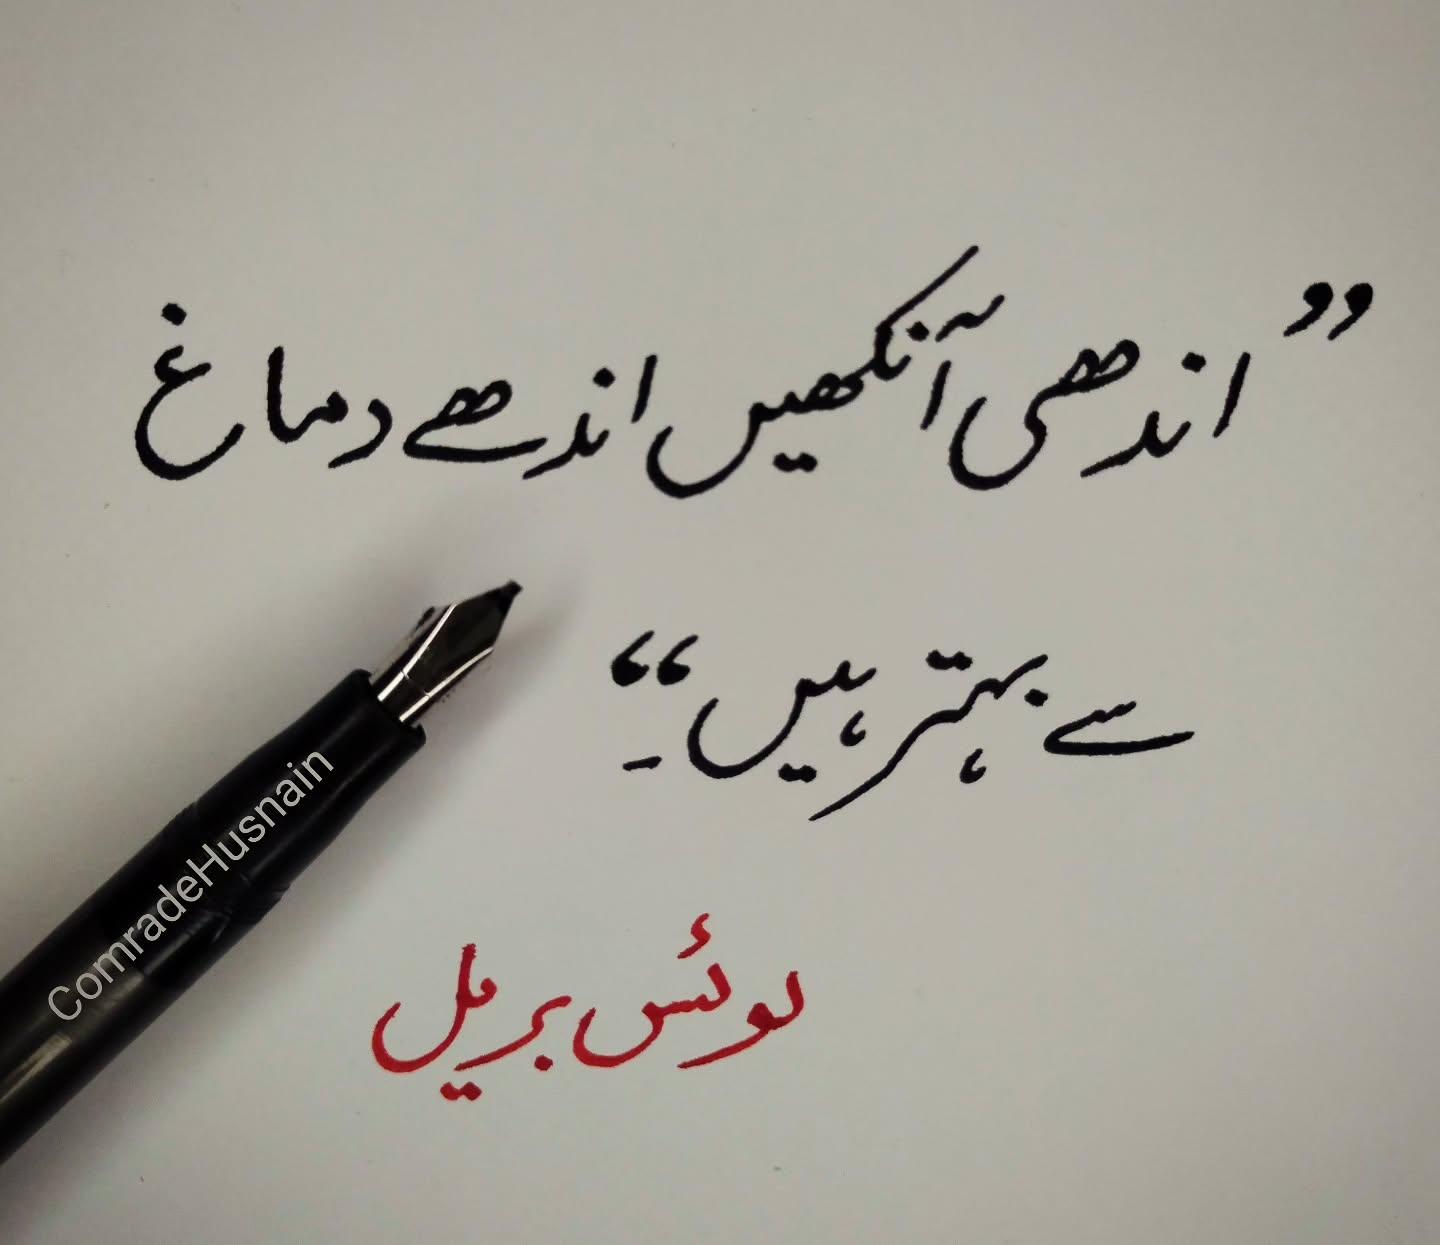 ”اندھی آنکھیں اندھے دماغ
سے بہتر ہیں“۔
لوئس بریل
ComradeHusnain